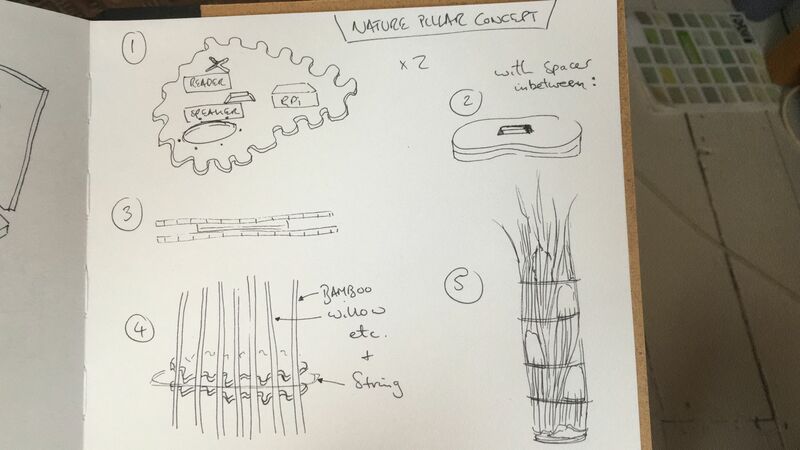 NATURE PILLAR CONCEPT
1
x2
READER
SPEAKER
RPi
with spacer
inbetween:
2
3
4
BAMBOO
willow
etc.
+
String
5